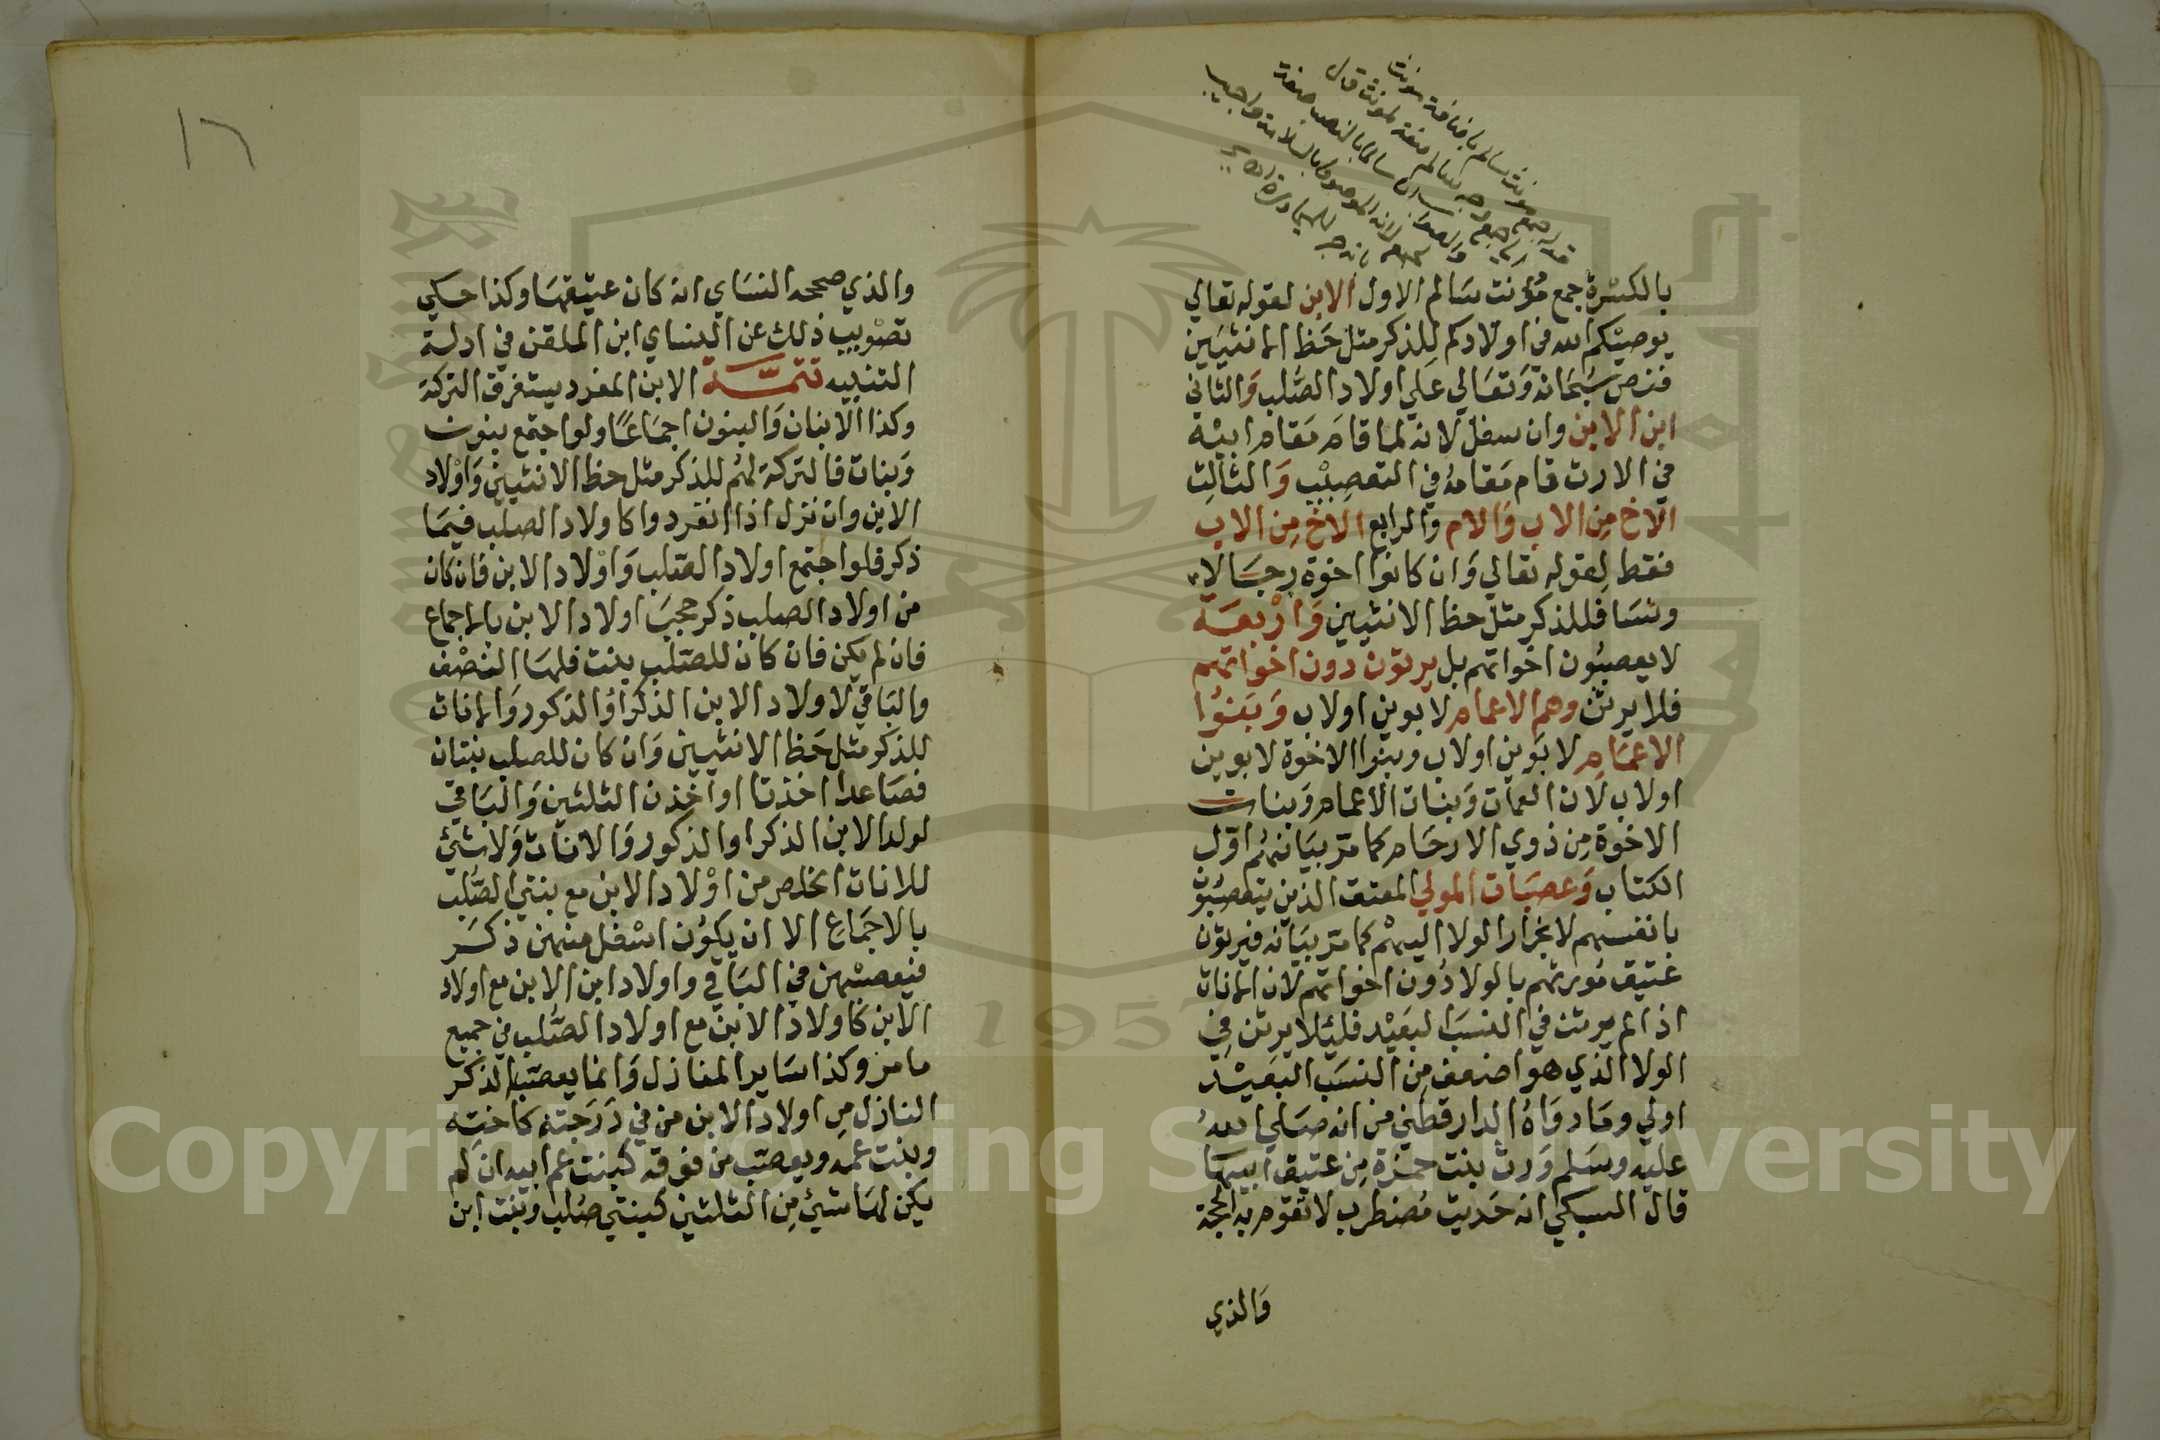 بالكسْرة جمع مُؤنث سَالم الاول الابن لقوله تعالي
يوصيْكم الله في اولادكم لِلذكر مثل حَظ الانثيَين
فنص سُبحَانه وَتعَالي عَلي اولاد الصُّلب وَالثاني
ابن الابن وان سفل لانه لما قامَ مَقام ابيْه
في الارث قام مَقامهُ في التعصِيْب وَالثالِث
الاخ مِن الاب وَالام وَالرابع الاخ مِن الاب
فقط لِقوله تعالي وَان كانوا اخوة رجَالا
ونسَا فللذكر مثل حظ الانثيين وَارْبعَة
لا يعصبُون اخواتهم بل يرثون دون اخواتهم
فلا يرثن وهم الاعمام لابوين او لاب وَبَنوُا
الاعمَام لابوَين او لاب وبنوا الاخوة لابوين
او لاب لان العمات وَبنات الاعمام وَبنات
الاخوة مِن ذوي الارحَام كما مرّ بيَانهُم اوّل
الكتاب وَعصبَات المولي المعتق الذين يتعصبُون
بانفسهم لانجرار الولا اليهْم كما مرّ بيَانه فيرثون
عَتيق مُورثهم بالولا دُون اخواتهم لان الاناث
اذا لم يرثن في النسَب البعَيْد فليئلا يرثن في
الولا الذي هو اضعف مِن النسَب البعَيْد
اولي ومَا روَاهُ الدارقطني من انه صَلي اللهُ
عليه وسَلم وَرث بنت حمزة مِن عتيق ابيهَا
قال السبكي انه حَديث مُضطرب لا تقوم به الحجة
وَالذي
١٦
والذي صححه النسَاي انه كان عتيقهَا وكذا حكي
تصْويب ذلك عن النساي ابن الملقن في ادلة
التنبيه تتمَّة الابن المفرد يستغرق التركة
وكذا الابنان وَالبنون اجمَاعًا ولو اجتمع بنون
وَبنات فالتركة لهُم للذكر مثل حظ الانثيين وَاوْلاد
الابن وان نزل اذا انفردوا كاولاد الصلب فيمَا
ذكر فلو اجتمع اولاد الصلب وَاوْلاد الابن فان كان
من اولاد الصلب ذكر حجبَ اولاد الابن بالاجماع
فان لم يكن فان كان للصّلب بنت فلهَا النصْف
والبَاقي لاولاد الابن الذكر اوُ الذكور وَالاناث
للذكر مثل حَظ الانثيين وَان كان للصلب بنتان
فصَاعدا اخذتا او اخذن الثلثين وَالبَاقي
لولد الابن الذكر او الذكور وَالاناث وَلا شئ
للاناث الخلص من اوْلاد الابن مع بنتي الصُّلب
بالاجمَاع الا ان يكوُن اسْفل منهن ذكَر
فيعصبْهن في البَاقي واولاد ابن الابن مع اولاد
الابن كاولاد الابن مع اولاد الصُّلب في جميع
ما مرّ وكذا سَاير المنازل وَانما يعصّب الذكر
النازل مِن اولاد الابن من في دَرَجته كاختِه
وبنت عمه ويعصّب من فوقه كبنت عم ابيه ان لم
يكن لهَا شئ مِن الثلثين كبنتي صُلب وَبنت ابن
Copyright © King Saud University
1957